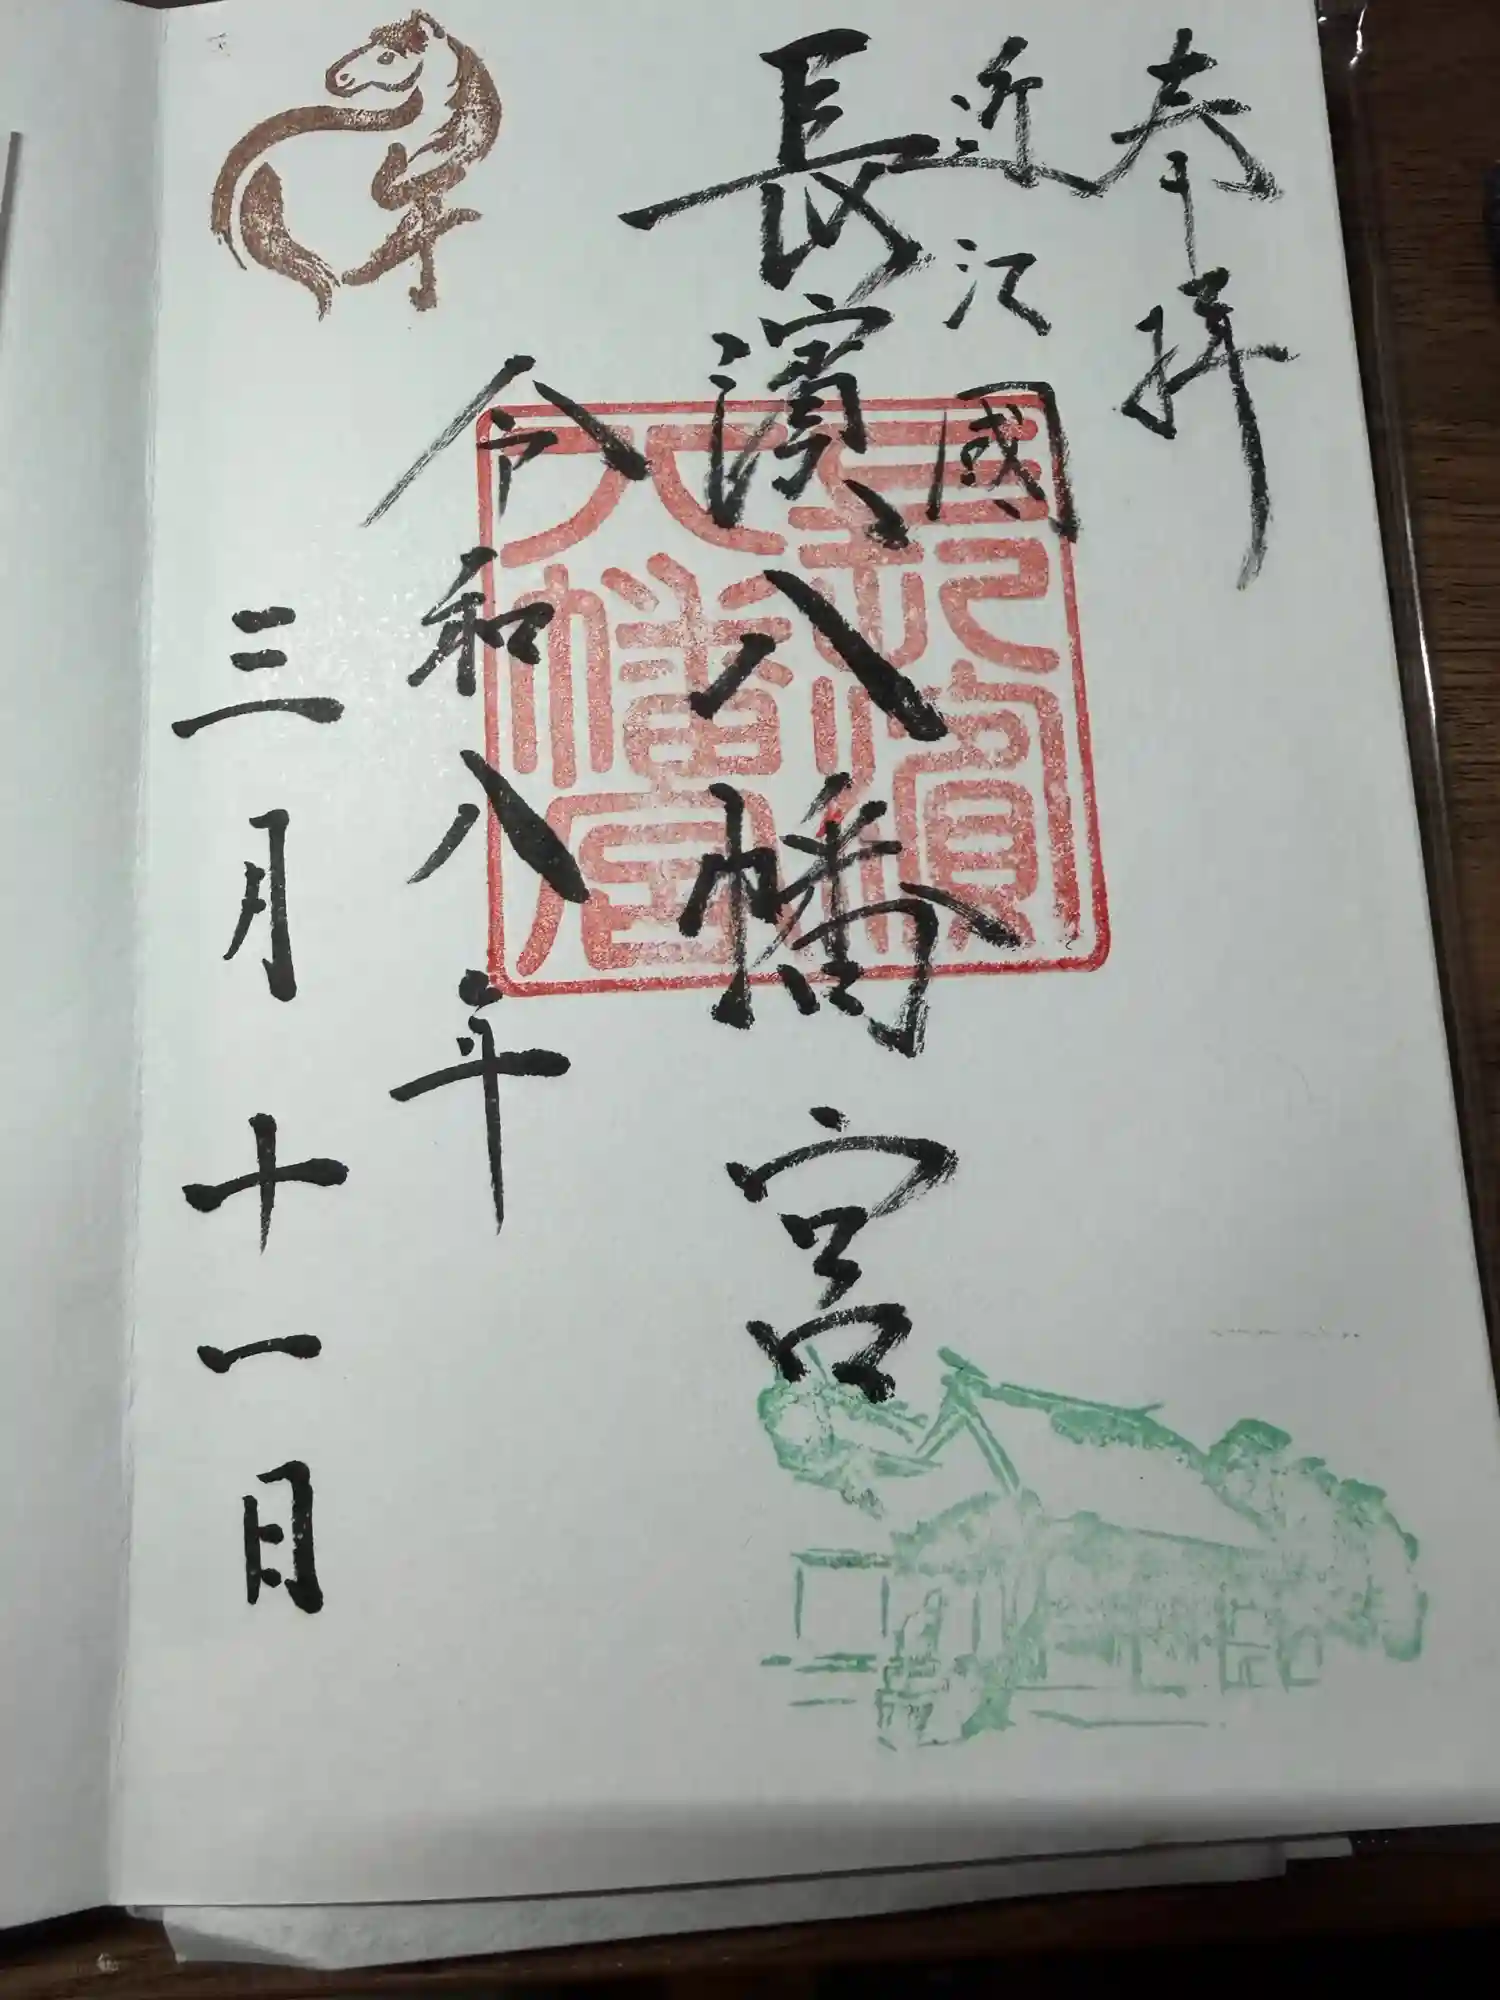 奉拝
近江國
長濱八幡宮
令和八年
三月十一日
午
長濱
八幡宮